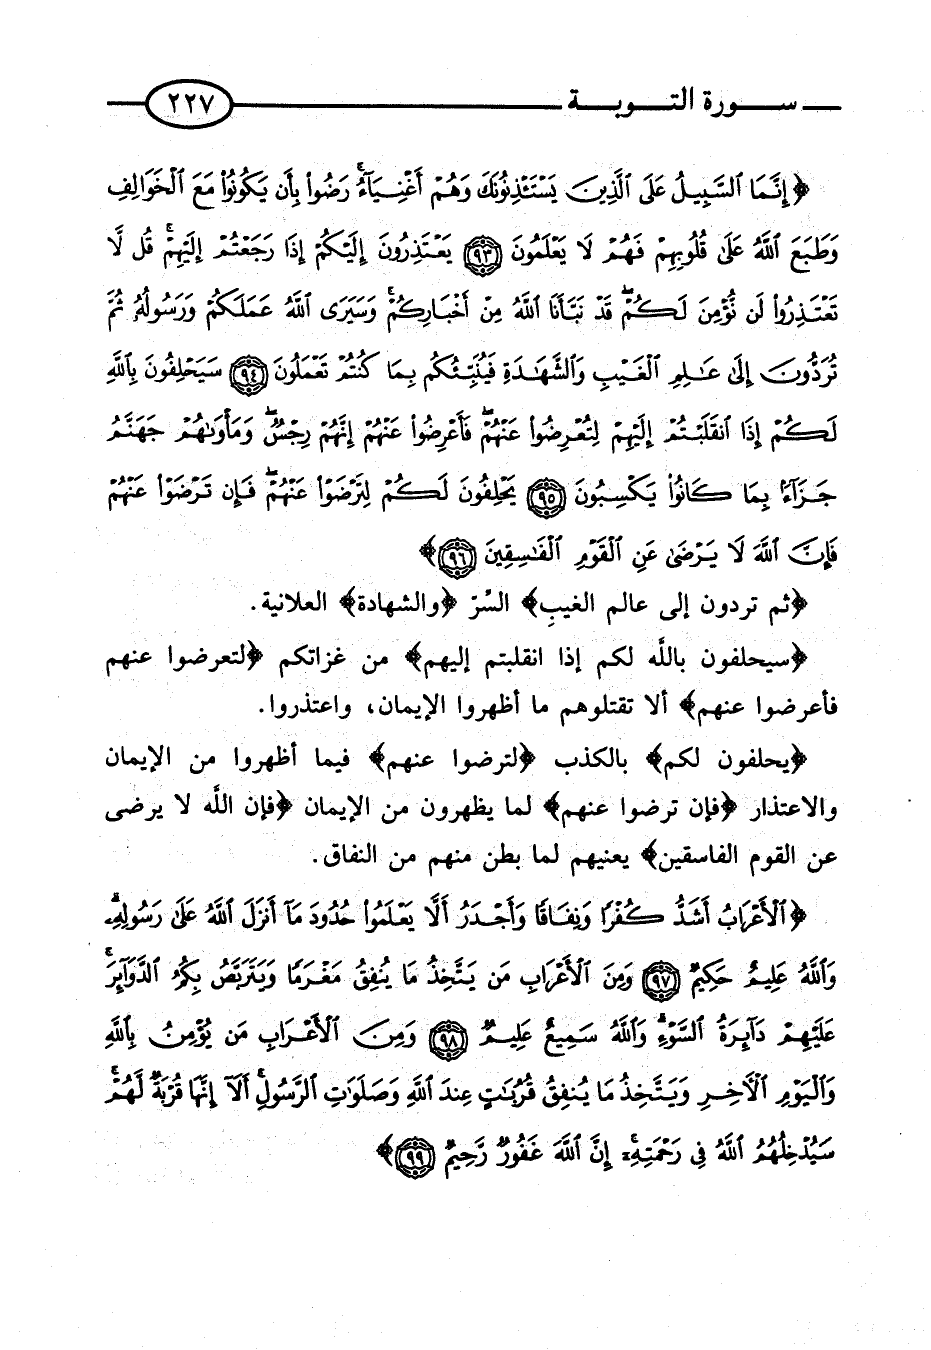 سورة التوبة
٢٢٧
﴿إِنَّمَا ٱلسَّبِيلُ عَلَى ٱلَّذِينَ يَسْتَـْٔذِنُونَكَ وَهُمْ أَغْنِيَآءُ ۚ رَضُوا۟ بِأَن يَكُونُوا۟ مَعَ ٱلْخَوَالِفِ
وَطَبَعَ ٱللَّهُ عَلَىٰ قُلُوبِهِمْ فَهُمْ لَا يَعْلَمُونَ ٩٣ يَعْتَذِرُونَ إِلَيْكُمْ إِذَا رَجَعْتُمْ إِلَيْهِمْ ۚ قُل لَّا
تَعْتَذِرُوا۟ لَن نُّؤْمِنَ لَكُمْ ۖ قَدْ نَبَّأَنَا ٱللَّهُ مِنْ أَخْبَارِكُمْ ۚ وَسَيَرَى ٱللَّهُ عَمَلَكُمْ وَرَسُولُهُۥ ثُمَّ
تُرَدُّونَ إِلَىٰ عَـٰلِمِ ٱلْغَيْبِ وَٱلشَّهَـٰدَةِ فَيُنَبِّئُكُم بِمَا كُنتُمْ تَعْمَلُونَ ٩٤ سَيَحْلِفُونَ بِٱللَّهِ
لَكُمْ إِذَا ٱنقَلَبْتُمْ إِلَيْهِمْ لِتُعْرِضُوا۟ عَنْهُمْ ۖ فَأَعْرِضُوا۟ عَنْهُمْ ۖ إِنَّهُمْ رِجْسٌ ۖ وَمَأْوَىٰهُمْ جَهَنَّمُ
جَزَآءًۢ بِمَا كَانُوا۟ يَكْسِبُونَ ٩٥ يَحْلِفُونَ لَكُمْ لِتَرْضَوْا۟ عَنْهُمْ ۖ فَإِن تَرْضَوْا۟ عَنْهُمْ
فَإِنَّ ٱللَّهَ لَا يَرْضَىٰ عَنِ ٱلْقَوْمِ ٱلْفَـٰسِقِينَ ٩٦﴾
﴿ثم تردون إلى عالم الغيبِ﴾ السِّرّ ﴿والشهادة﴾ العلانية.
﴿سيحلفون باللَّه لكم إذا انقلبتم إليهم﴾ من غزاتكم ﴿لتعرضوا عنهم
فأعرضوا عنهم﴾ ألا تقتلوهم ما أظهروا الإيمان، واعتذروا.
﴿يحلفون لكم﴾ بالكذب ﴿لترضوا عنهم﴾ فيما أظهروا من الإيمان
والاعتذار ﴿فإن ترضوا عنهم﴾ لما يظهرون من الإيمان ﴿فإن اللَّه لا يرضى
عن القوم الفاسقين﴾ يعنيهم لما بطن منهم من النفاق.
﴿ٱلْأَعْرَابُ أَشَدُّ كُفْرًا وَنِفَاقًا وَأَجْدَرُ أَلَّا يَعْلَمُوا۟ حُدُودَ مَآ أَنزَلَ ٱللَّهُ عَلَىٰ رَسُولِهِۦ ۗ
وَٱللَّهُ عَلِيمٌ حَكِيمٌ ٩٧ وَمِنَ ٱلْأَعْرَابِ مَن يَتَّخِذُ مَا يُنفِقُ مَغْرَمًا وَيَتَرَبَّصُ بِكُمُ ٱلدَّوَآئِرَ ۚ
عَلَيْهِمْ دَآئِرَةُ ٱلسَّوْءِ ۗ وَٱللَّهُ سَمِيعٌ عَلِيمٌ ٩٨ وَمِنَ ٱلْأَعْرَابِ مَن يُؤْمِنُ بِٱللَّهِ
وَٱلْيَوْمِ ٱلْـَٔاخِرِ وَيَتَّخِذُ مَا يُنفِقُ قُرُبَـٰتٍ عِندَ ٱللَّهِ وَصَلَوَٰتِ ٱلرَّسُولِ ۚ أَلَآ إِنَّهَا قُرْبَةٌ لَّهُمْ ۚ
سَيُدْخِلُهُمُ ٱللَّهُ فِى رَحْمَتِهِۦٓ ۗ إِنَّ ٱللَّهَ غَفُورٌ رَّحِيمٌ ٩٩﴾